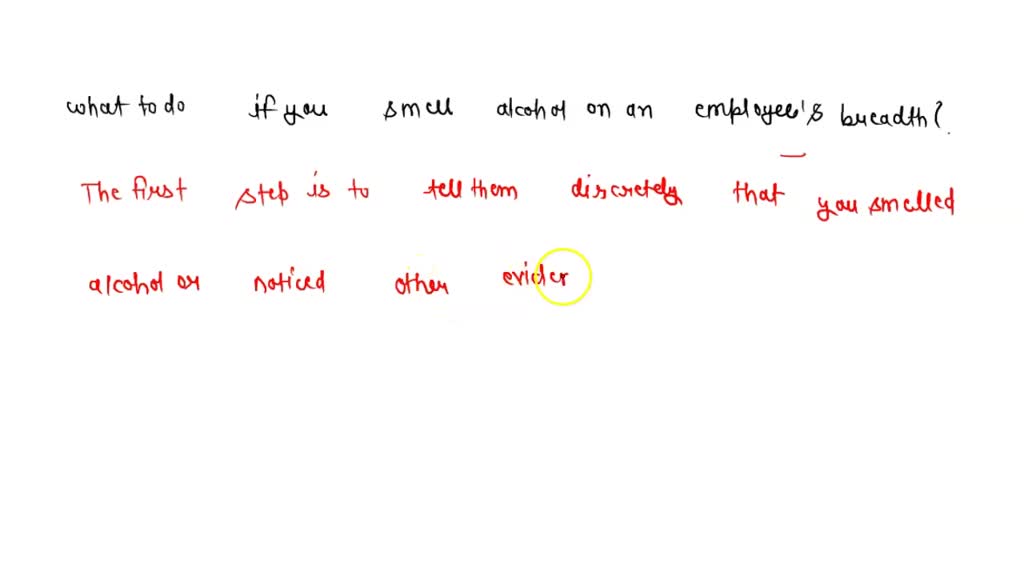 what to do if you smell alcohol on an employee's breadth?
The first step is to tell them discretely that you smelled
alcohol or noticed other evider